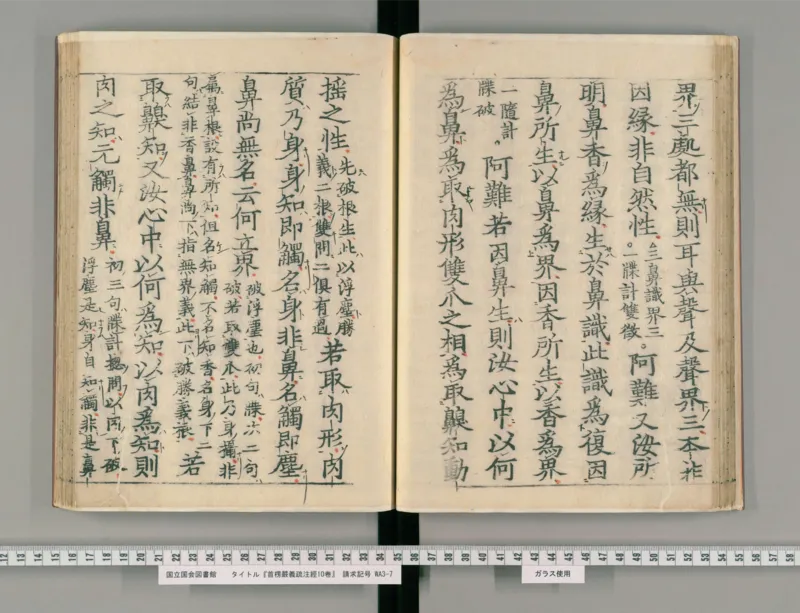 界三處都無則耳與聲及聲界三本非
因緣非自然性。三鼻識界三
一牒計雙徵。阿難又汝所
明鼻香為緣生於鼻識此識為復因
鼻所生以鼻為界因香所生以香為界
一隨計
牒破。阿難若因鼻生則汝心中以何
為鼻為取肉形雙爪之相為取齅知動
搖之性先破根生此以浮塵勝
義二根雙問二俱有過若取肉形肉
質乃身身知即觸名身非鼻名觸即塵
鼻尚無名云何立界破浮塵也初句牒次二句
破若取雙爪此乃身攝非
鼻根設有所知但名知觸不名知香名身下二
句結非香鼻鼻尚下指無界義此下破勝義根若
取齅知又汝心中以何為知以肉為知則
肉之知元觸非鼻初三句牒計以肉下破
浮塵是知身自知觸非是鼻
国立国会図書館 タイトル『首楞厳義疏注経10巻』 請求記号 WA3-7
ガラス使用